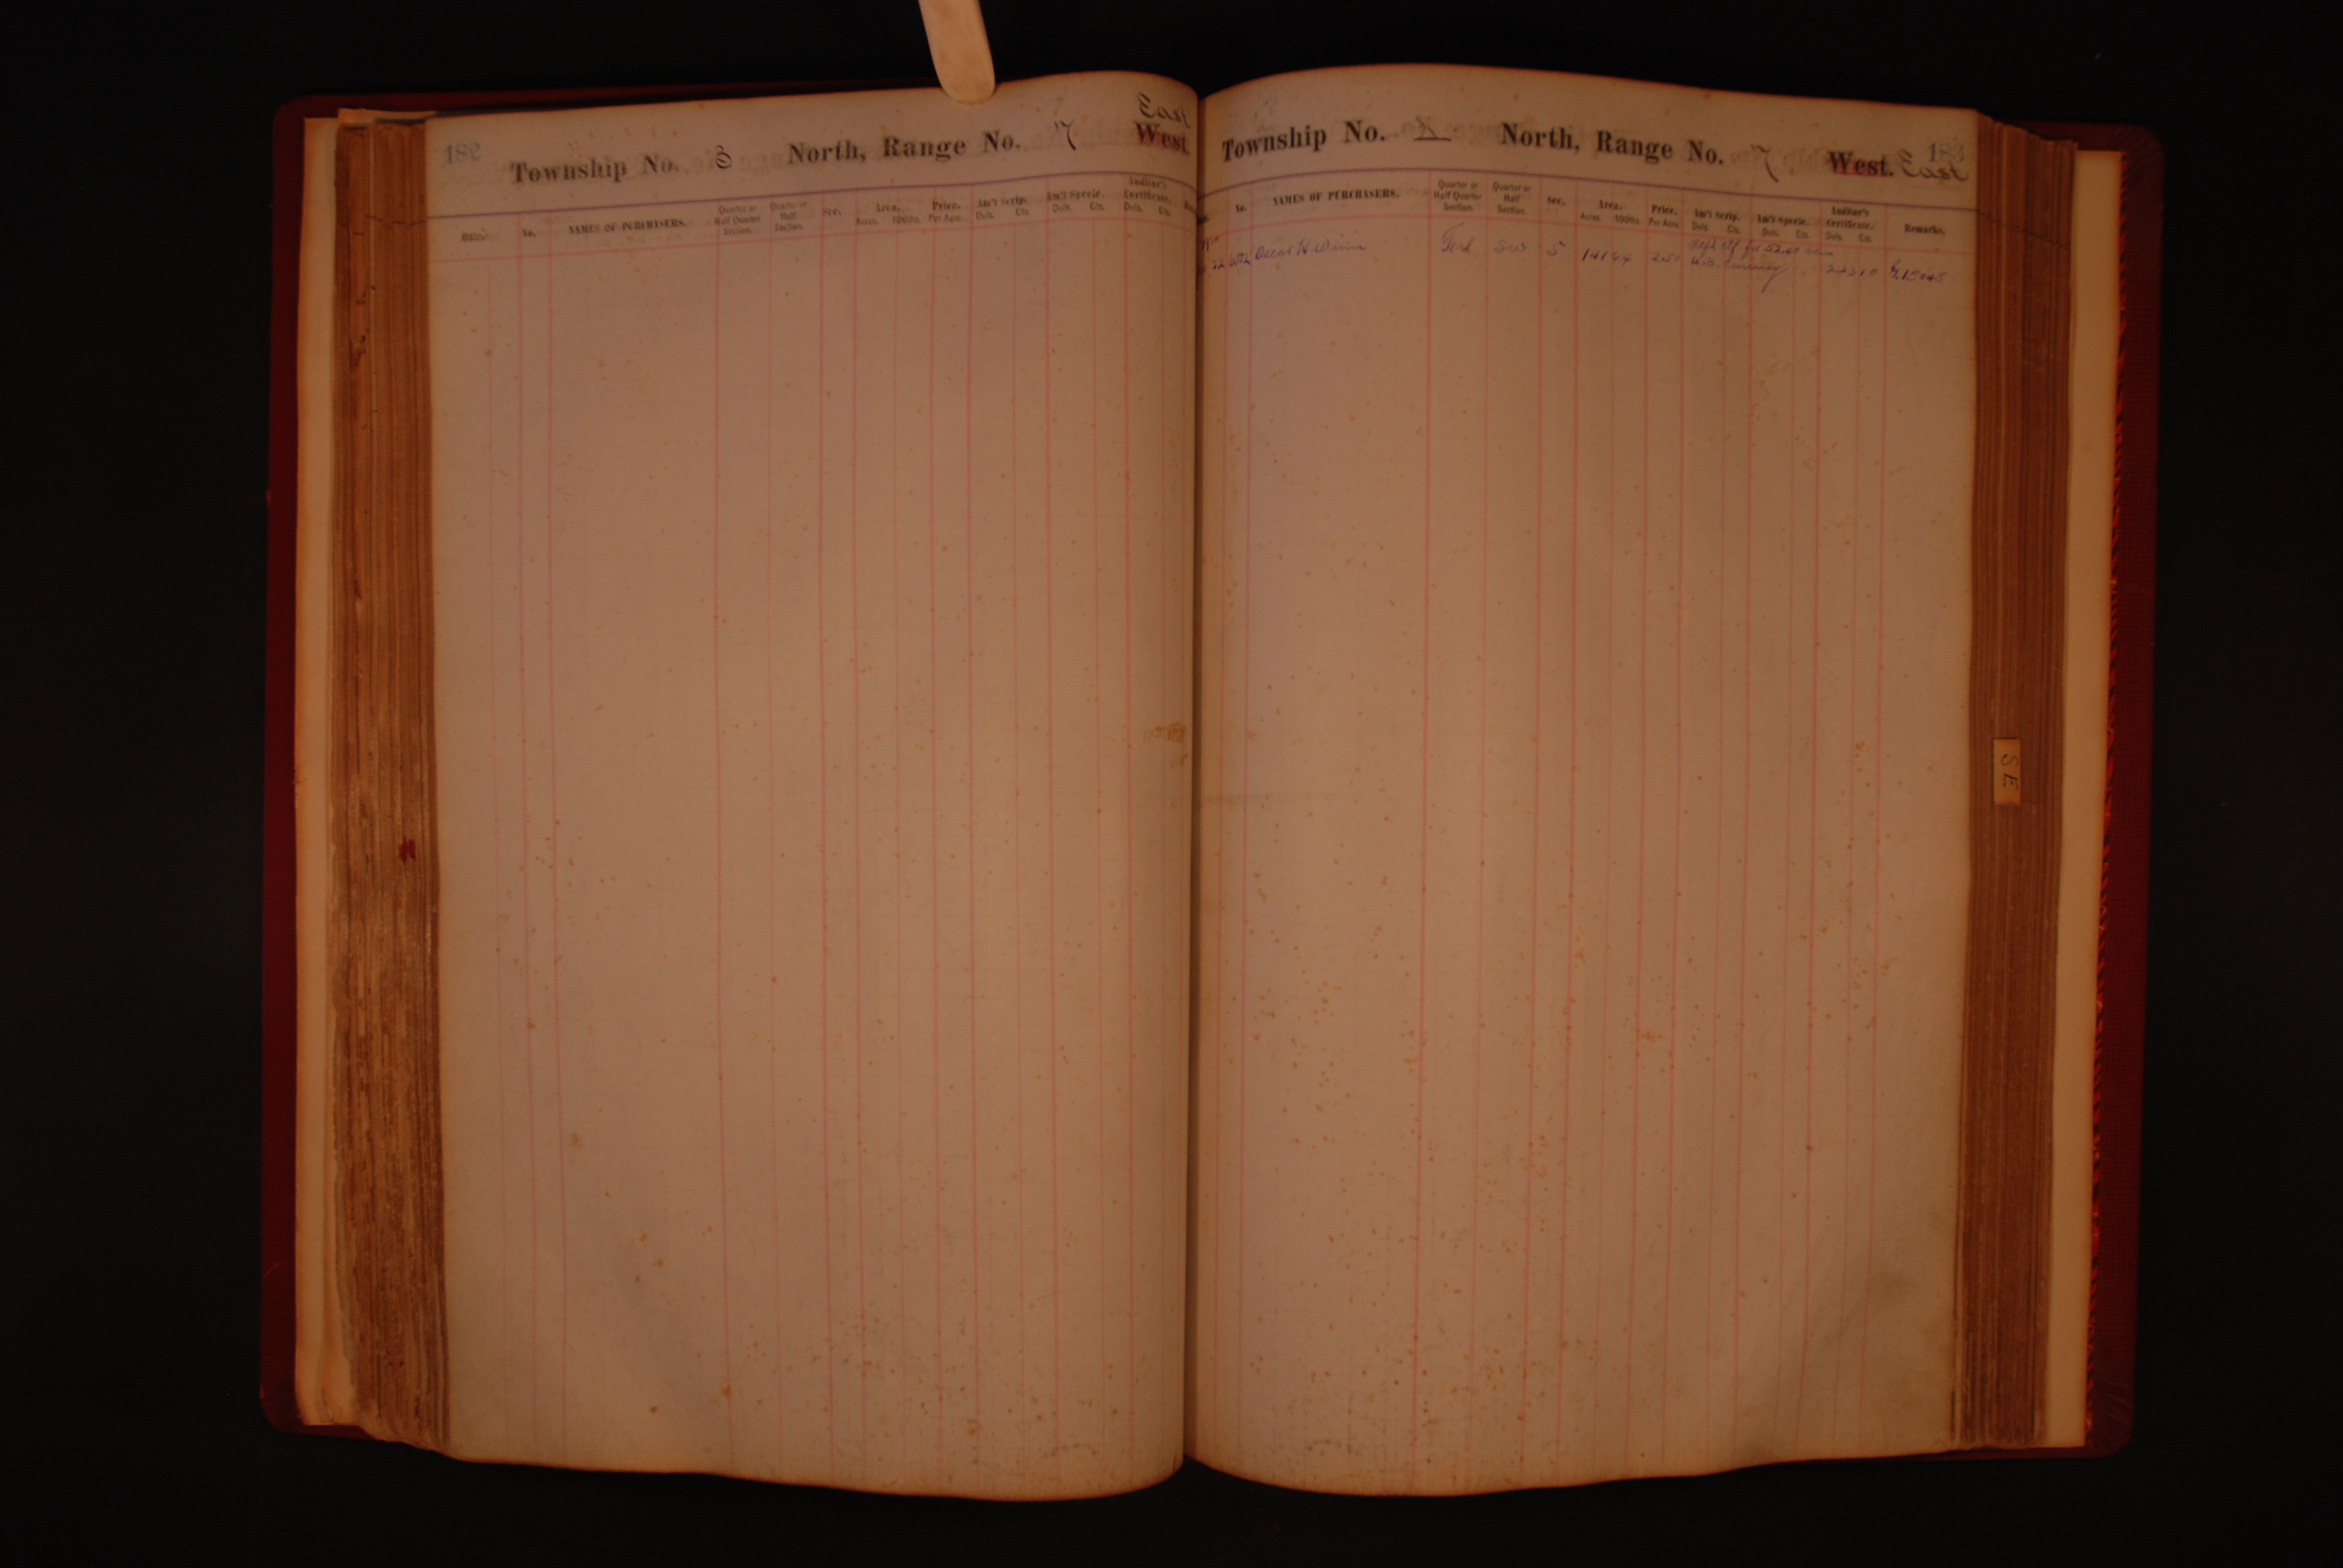 182
East
Township No. 3 North, Range No. 7 West.
Date. No. NAMES OF PURCHASERS. Quarter or Half Quarter Section. Quarter or Half Section. Sec. Area. Acres 100ths. Price. Per Acre. Am't Scrip. Dols. Cts. Am't Specie. Dols. Cts. Auditor's Certificate. Dols. Cts.
183
Township No. X North, Range No. 7 West. East
No. NAMES OF PURCHASERS. Quarter or Half Quarter Section. Quarter or Half Section. Sec. Area. Acres 100ths. Price. Per Acre. Am't Scrip. Dols. Cts. Am't Specie. Dols. Cts. Auditor's Certificate. Dols. Cts. Remarks.
22 Oscar H 5 141 64 2.50 U.S. Currency
SE